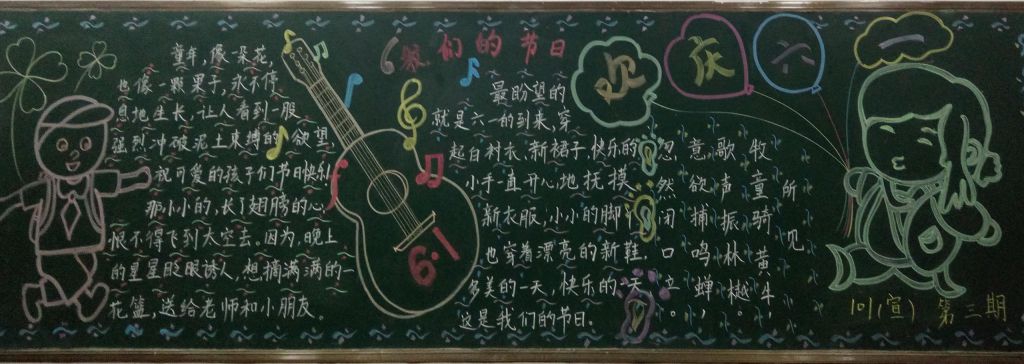 童年,像一朵花,
也像一颗果子,永不停
息地生长,让人看到一股
强烈冲破泥土束缚的欲望
祝可爱的孩子们节日快乐!
那小小的,长了翅膀的心,
恨不得飞到太空去。因为,晚上
的星星眨眼诱人。想摘满满的一
花篮,送给老师和小朋友。
6.1
我们的节日
最盼望的
就是六一的到来,穿
起白衬衣、新裙子,快乐的
小手一直开心地抚摸
新衣服,小小的脚丫
也穿着漂亮的新鞋,
多美的一天,快乐的一天
这是我们的节日。
欢庆六一
牧童骑黄牛,
歌声振林樾,
意欲捕鸣蝉,
忽然闭口立。
所见
101(宣) 第三期